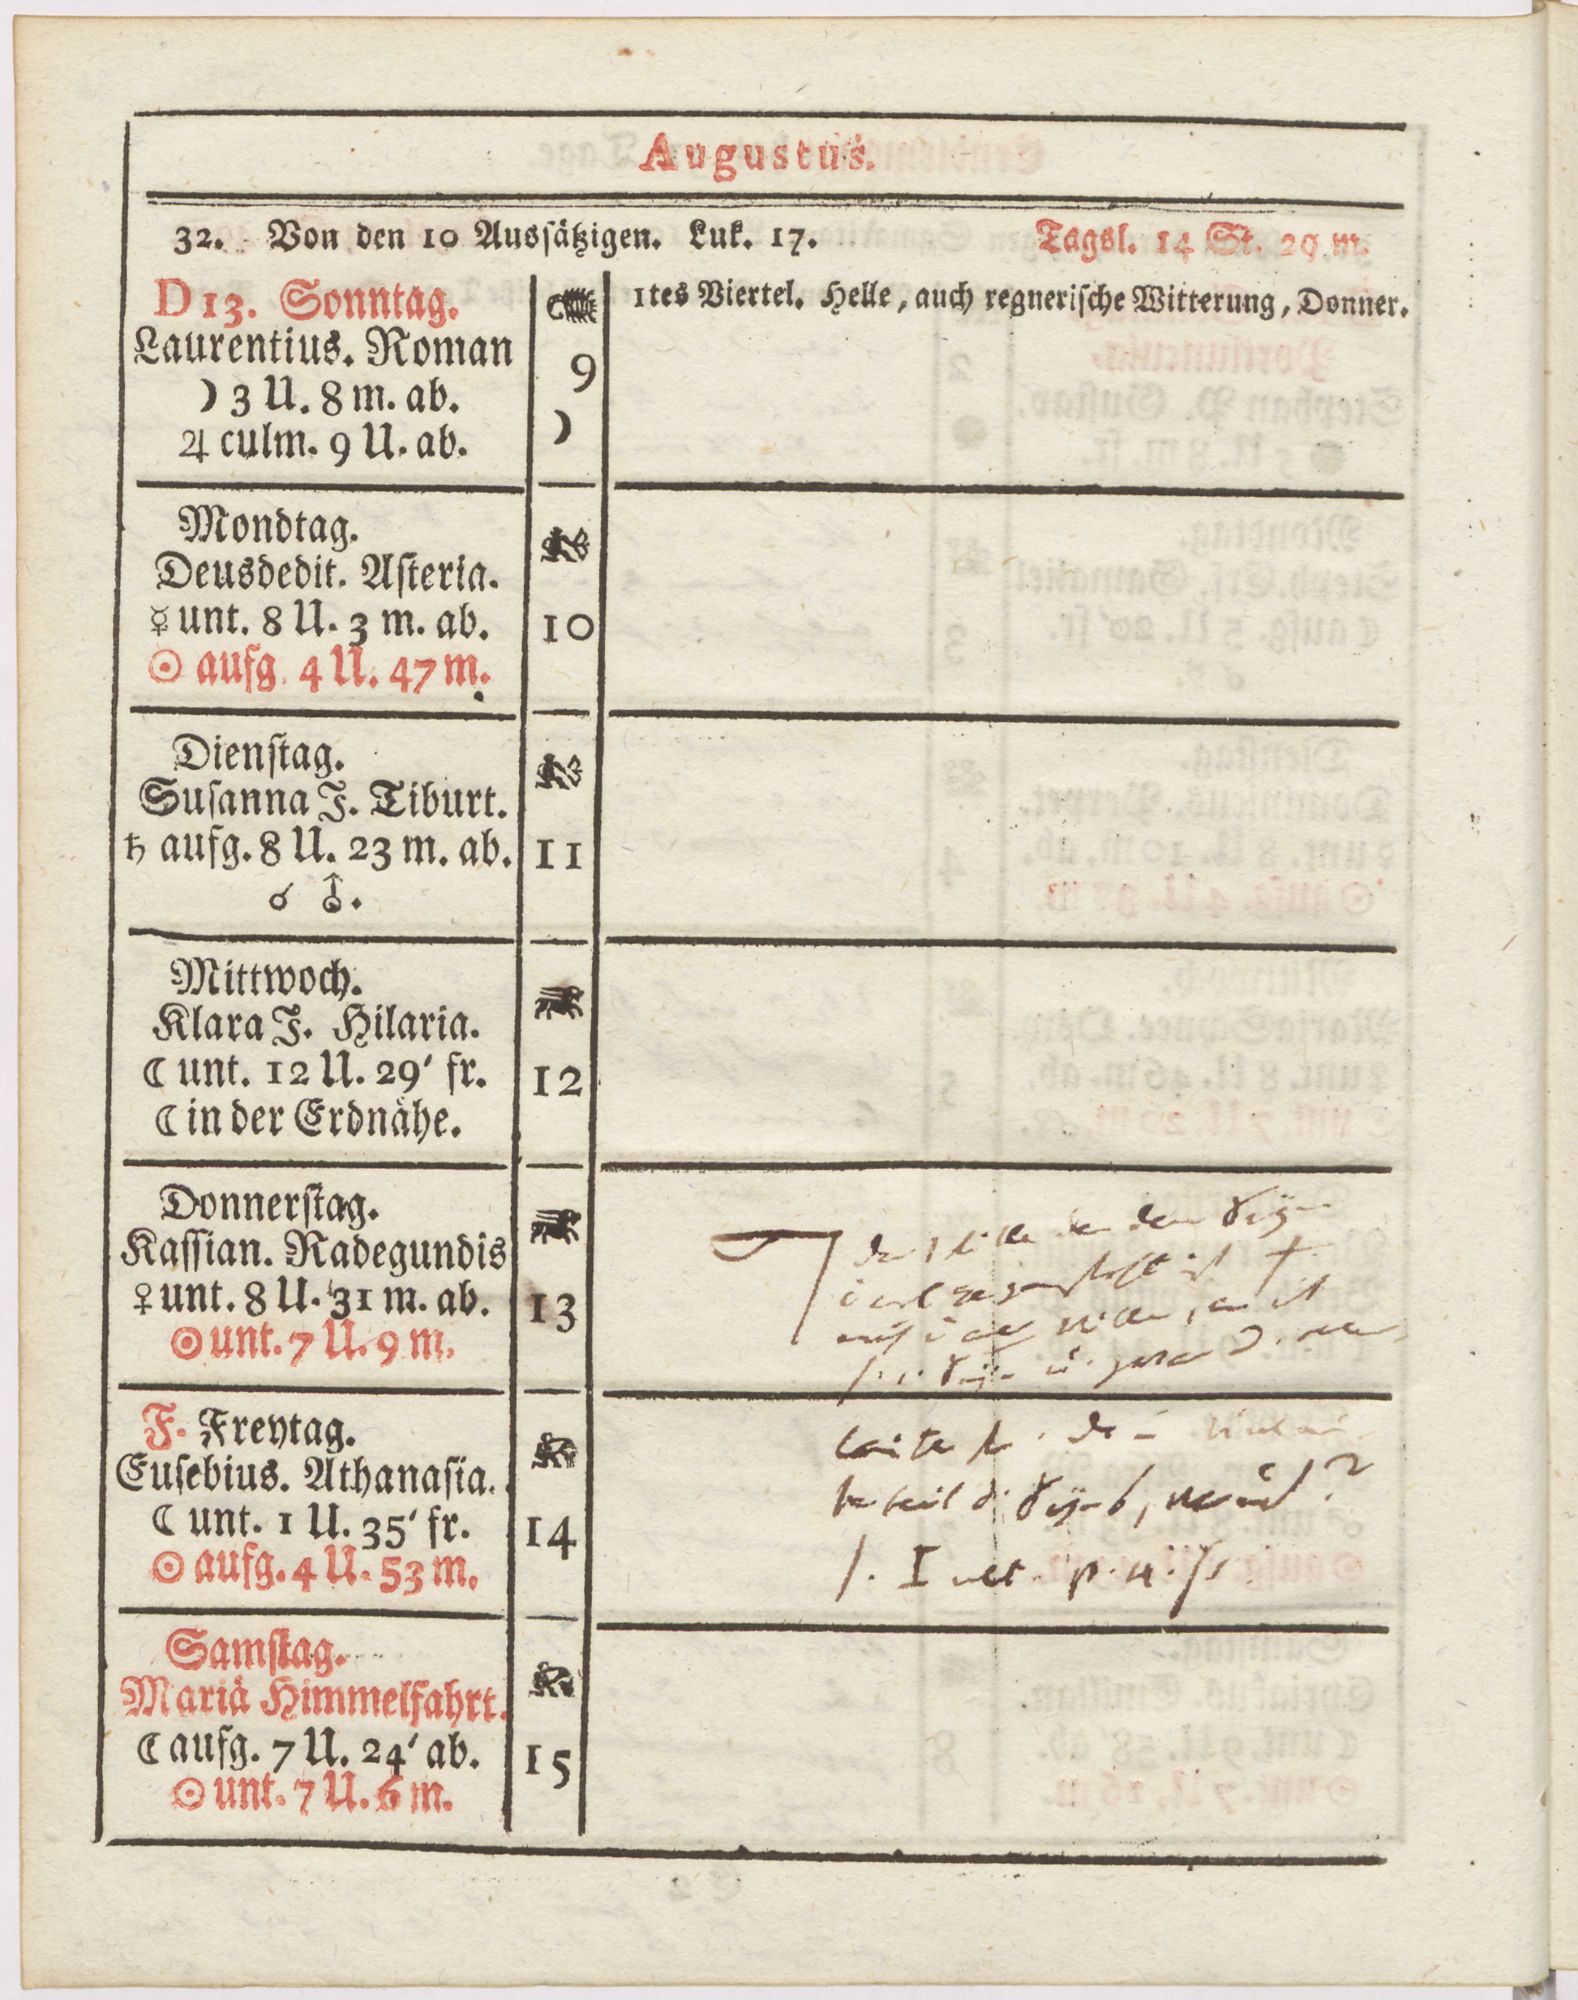 Augustus.
32. Von den 10 Ausſätzigen. Luk. 17. Tagsl. 14 St. 29 m.
D 13. Sonntag.
Laurentius. Roman
☽ 3 U. 8 m. ab.
♃ culm. 9 U. ab.
9
☽
1tes Viertel. Helle, auch regneriſche Witterung, Donner.
Mondtag.
Deusdedit. Aſteria.
☿ unt. 8 U. 3 m. ab.
☉ aufg. 4 U. 47 m.
10
Dienſtag.
Suſanna J. Tiburt.
♄ aufg. 8 U. 23 m. ab.
☌ ⛢.
11
Mittwoch.
Klara J. Hilaria.
☾ unt. 12 U. 29' fr.
☾ in der Erdnähe.
12
Donnerſtag.
Kaſſian. Radegundis
♀ unt. 8 U. 31 m. ab.
☉ unt. 7 U. 9 m.
13
F. Freytag.
Euſebius. Athanaſia.
☾ unt. 1 U. 35' fr.
☉ aufg. 4 U. 53 m.
14
Samſtag.
Mariä Himmelfahrt.
☾ aufg. 7 U. 24' ab.
☉ unt. 7 U. 6 m.
15